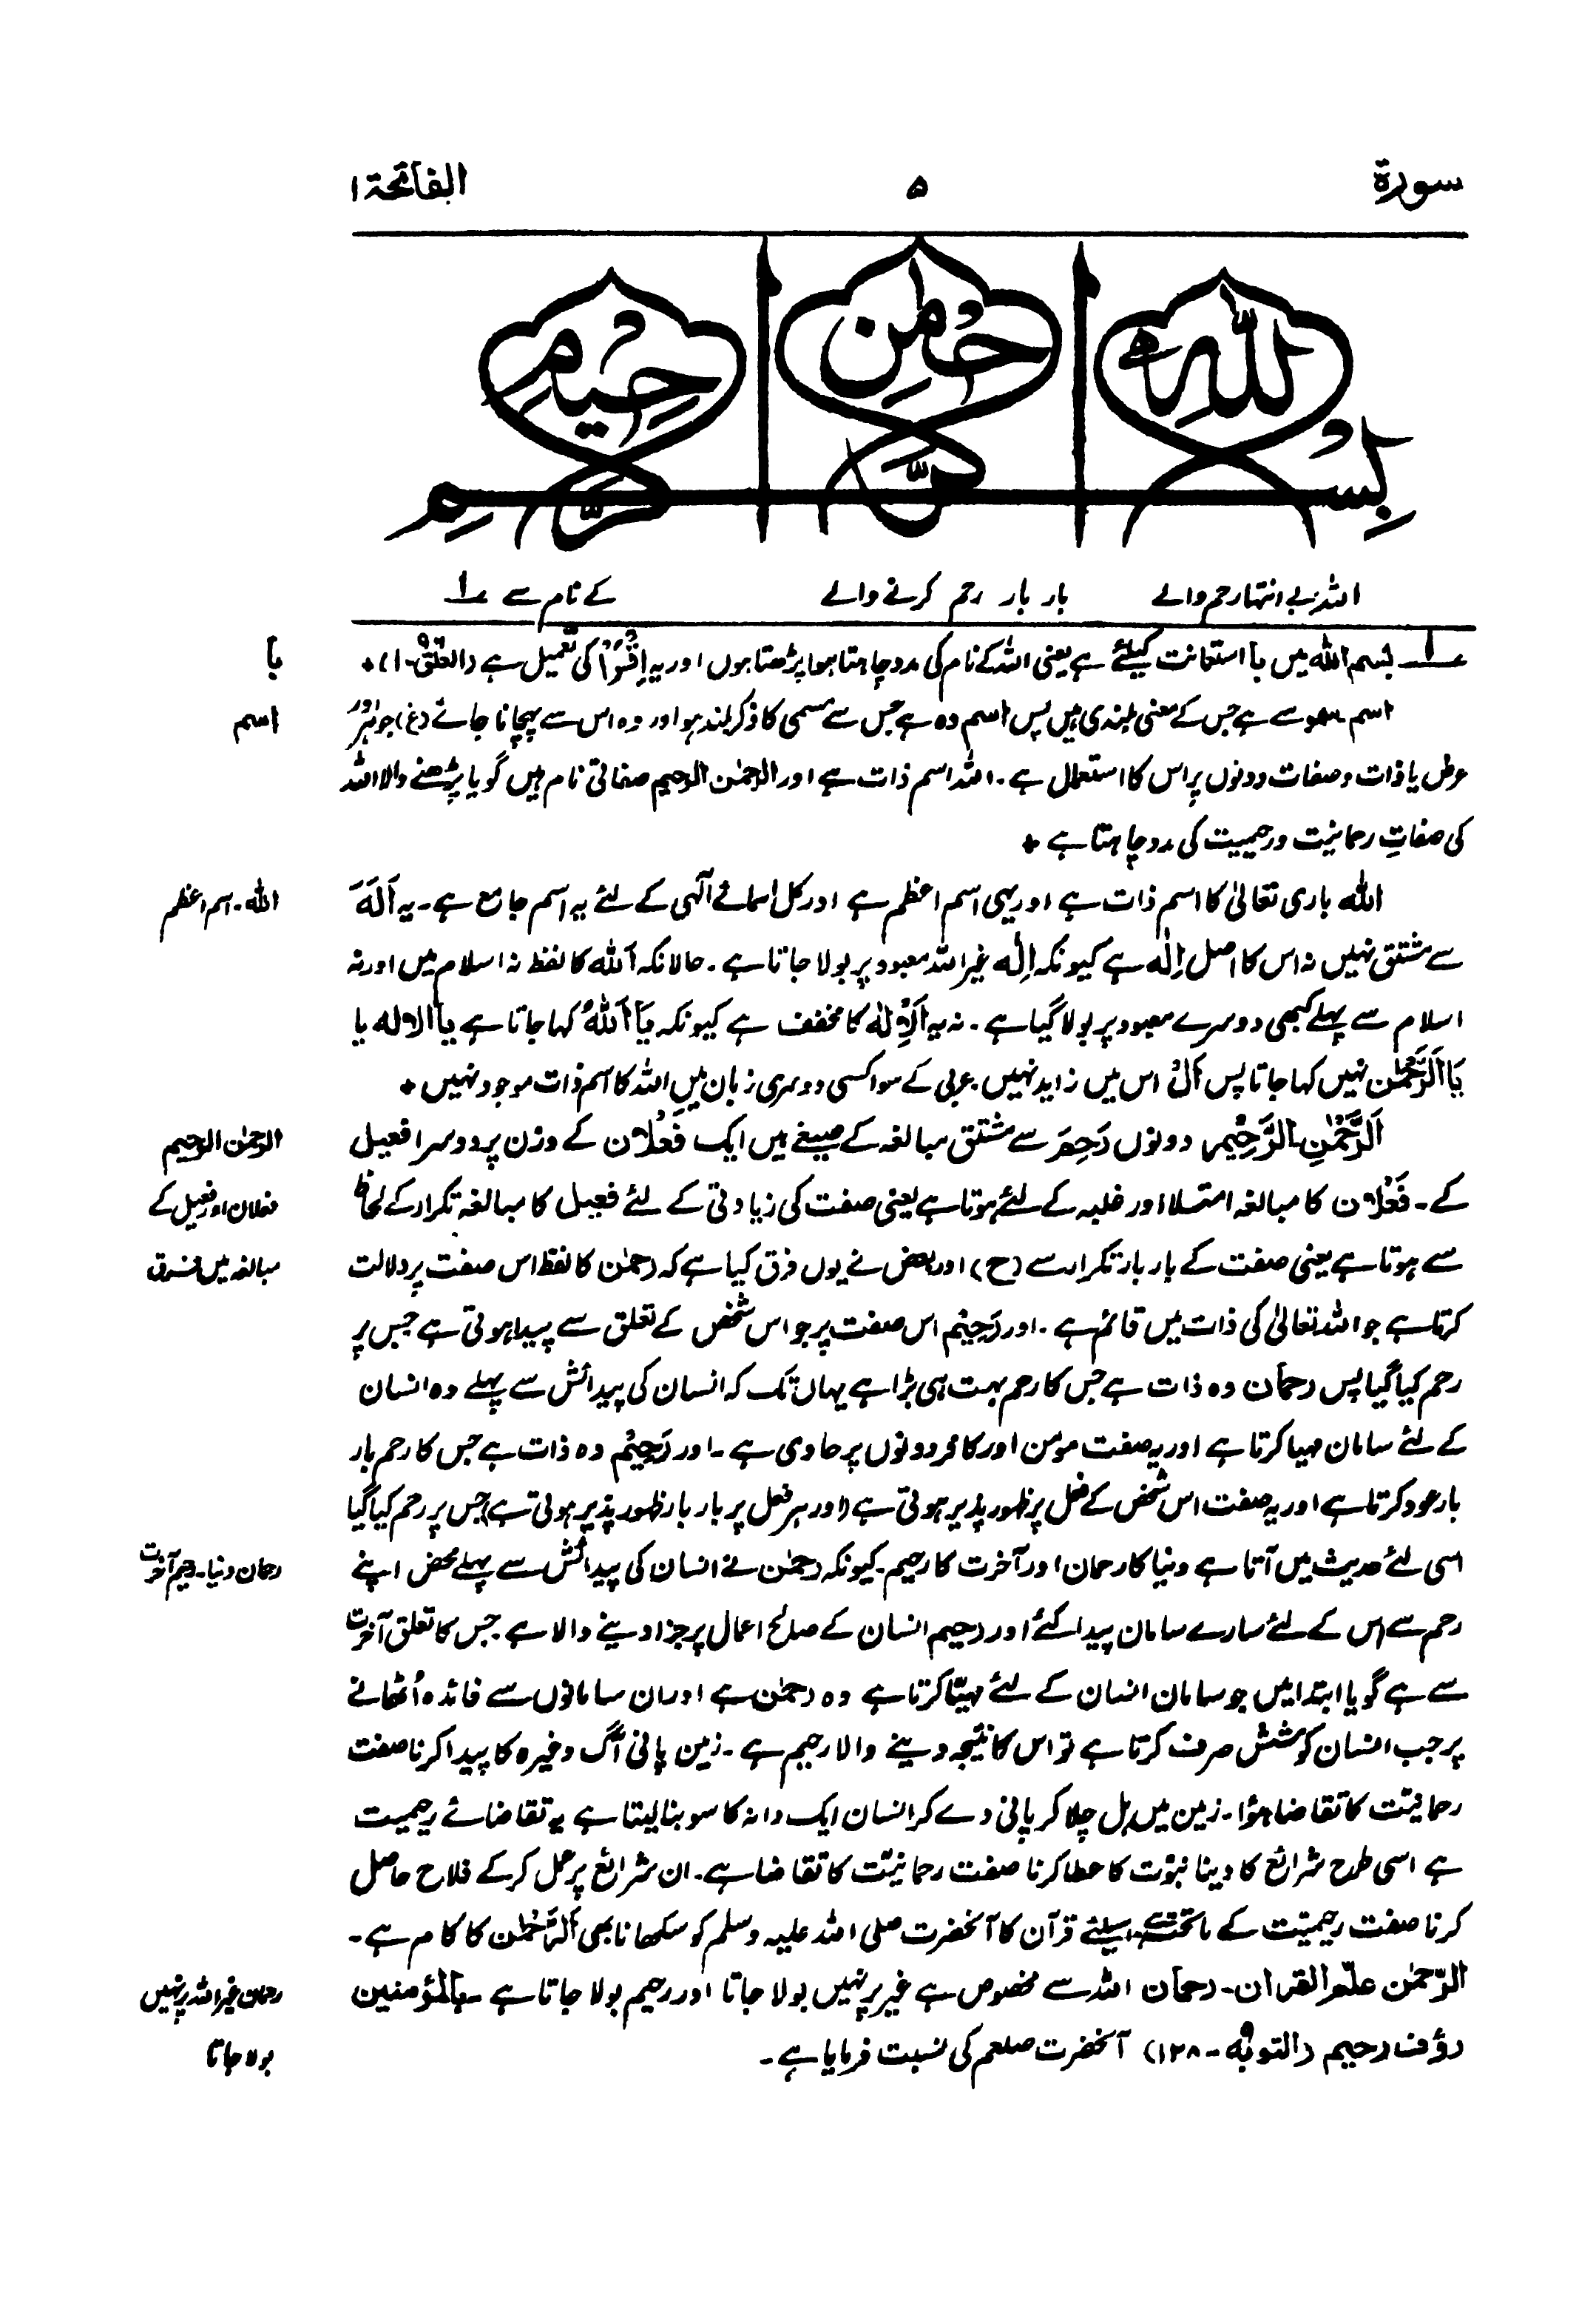 سورة ۵ الفاتحة ۱
بِسْمِ اللّٰهِ الرَّحْمٰنِ الرَّحِيْمِ
اللہ بے انتہا رحم والے بار بار رحم کرنے والے کے نام سے ؎۱
؎۱ بسم اللہ میں با استعانت کیلئے ہے یعنی اللہ کے نام کی مدد چاہتا ہوا پڑھتا ہوں اور یہ اِقْرَاْ کی تعمیل ہے (العلق ۹۶-۱)+
با
اسم سمو سے ہے جس کے معنی بلندی ہیں پس اسم وہ ہے جس سے مسمی کا ذکر بلند ہو اور وہ اس سے پہچانا جائے (غ) جوہر اور
اسم
عرض یا ذات و صفات دونوں پر اس کا استعمال ہے۔ اللہ اسم ذات ہے اور الرحمٰن الرحیم صفاتی نام ہیں گویا پڑھنے والا اللہ
کی صفاتِ رحمانیت و رحیمیت کی مدد چاہتا ہے +
اللہ باری تعالیٰ کا اسم ذات ہے اور یہی اسم اعظم ہے اور کل اسمائے الٰہی کے لئے یہ اسم جامع ہے۔ یہ اَلَهَ
اللہ۔ اسم اعظم
سے مشتق نہیں نہ اس کا اصل اِلٰه ہے کیونکہ اِلٰه غیر اللہ معبود پر بولا جاتا ہے۔ حالانکہ اللہ کا لفظ نہ اسلام میں اور نہ
اسلام سے پہلے کبھی دوسرے معبود پر بولا گیا ہے۔ نہ یہ اَلْاِلٰه کا مخفف ہے کیونکہ یَا اَللّٰهُ کہا جاتا ہے یا الالہ یا
یَا اَلرَّحْمٰن نہیں کہا جاتا پس اَلْ اس میں زاید نہیں۔ عربی کے سوا کسی دوسری زبان میں اللہ کا اسم ذات موجود نہیں +
اَلرَّحْمٰنِ الرَّحِيْمِ دونوں رَحِمَ سے مشتق مبالغہ کے صیغے ہیں ایک فَعْلَان کے وزن پر دوسرا فعیل
الرحمٰن الرحیم
کے۔ فَعْلَان کا مبالغہ امتلا اور غلبہ کے لئے ہوتا ہے یعنی صفت کی زیادتی کے لئے فعیل کا مبالغہ تکرار کے لحاظ
فعلان اور فعیل کے
سے ہوتا ہے یعنی صفت کے بار بار تکرار سے (ح) اور بعض نے یوں فرق کیا ہے کہ رحمٰن کا لفظ اس صفت پر دلالت
مبالغہ میں فرق
کرتا ہے جو اللہ تعالیٰ کی ذات میں قائم ہے۔ اور رَحِیْم اس صفت پر جو اس شخص کے تعلق سے پیدا ہوتی ہے جس پر
رحم کیا گیا پس رحمان وہ ذات ہے جس کا رحم بہت ہی بڑا ہے یہاں تک کہ انسان کی پیدائش سے پہلے وہ انسان
کے لئے سامان مہیا کرتا ہے اور یہ صفت مومن اور کافر دونوں پر حاوی ہے۔ اور رَحِیْم وہ ذات ہے جس کا رحم بار
بار عود کرتا ہے اور یہ صفت اس شخص کے فعل پر ظہور پذیر ہوتی ہے (اور ہر فعل پر بار بار ظہور پذیر ہوتی ہے) جس پر رحم کیا گیا
اسی لئے حدیث میں آتا ہے دنیا کا رحمان اور آخرت کا رحیم۔ کیونکہ رحمٰن نے انسان کی پیدائش سے پہلے محض اپنے
رحمان دنیا۔ رحیم آخرت
رحم سے اس کے لئے سارے سامان پیدا کئے اور رحیم انسان کے صالح اعمال پر جزا دینے والا ہے جس کا تعلق آخرت
سے ہے گویا ابتدا میں جو سامان انسان کے لئے مہیّا کرتا ہے وہ رحمٰن ہے اور ان سامانوں سے فائدہ اُٹھانے
پر جب انسان کوشش صرف کرتا ہے تو اس کا نتیجہ دینے والا رحیم ہے۔ زمین پانی آگ وغیرہ کا پیدا کرنا صفت
رحمانیّت کا تقاضا ہؤا۔ زمین میں ہل چلا کر پانی دے کر انسان ایک دانہ کا سو بنا لیتا ہے یہ تقاضائے رحیمیت
ہے اسی طرح شرائع کا دینا نبوّت کا عطا کرنا صفت رحمانیّت کا تقاضا ہے۔ ان شرائع پر عمل کر کے فلاح حاصل
کرنا صفت رحیمیّت کے ماتحت ہے۔ اسلئے قرآن کا آنحضرت صلی اللہ علیہ وسلم کو سکھانا بھی اَلرَّحْمٰن کا کام ہے۔
الرّحمٰن علّم القراٰن۔ رحمان اللہ سے مخصوص ہے غیر پر نہیں بولا جاتا اور رحیم بولا جاتا ہے۔ بالمؤمنین
رحمان غیر اللہ پر نہیں
رؤف رحیم (التوبہ ۹-۱۲۸) آنحضرت صلعم کی نسبت فرمایا ہے۔
بولا جاتا